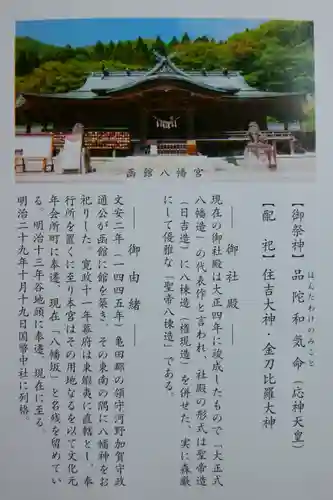 函館八幡宮
【御祭神】品陀和気命（応神天皇）
ほんだわけのみこと
【配　祀】住吉大神・金刀比羅大神
── 御社殿 ──
現在の御社殿は大正四年に竣成したもので「大正式
八幡造」の代表作と言われ、社殿の形式は聖帝造
（日吉造）に八棟造（権現造）を併せた、実に森厳
にして優雅な「聖帝八棟造」である。
── 御由緒 ──
文安二年（一四四五年）亀田郡の領守河野加賀守政
通公が函館に館を築き、その東南の隅に八幡神をお
祀りした。寛政十一年幕府は東蝦夷に直轄とし、奉
行所を置くに至り本宮はその用地なるを以て文化元
年会所町に奉遷、現在「八幡坂」と名残を留めてい
る。明治十三年谷地頭に奉遷、現在に至る。
明治二十九年十月十九日国幣中社に列格。